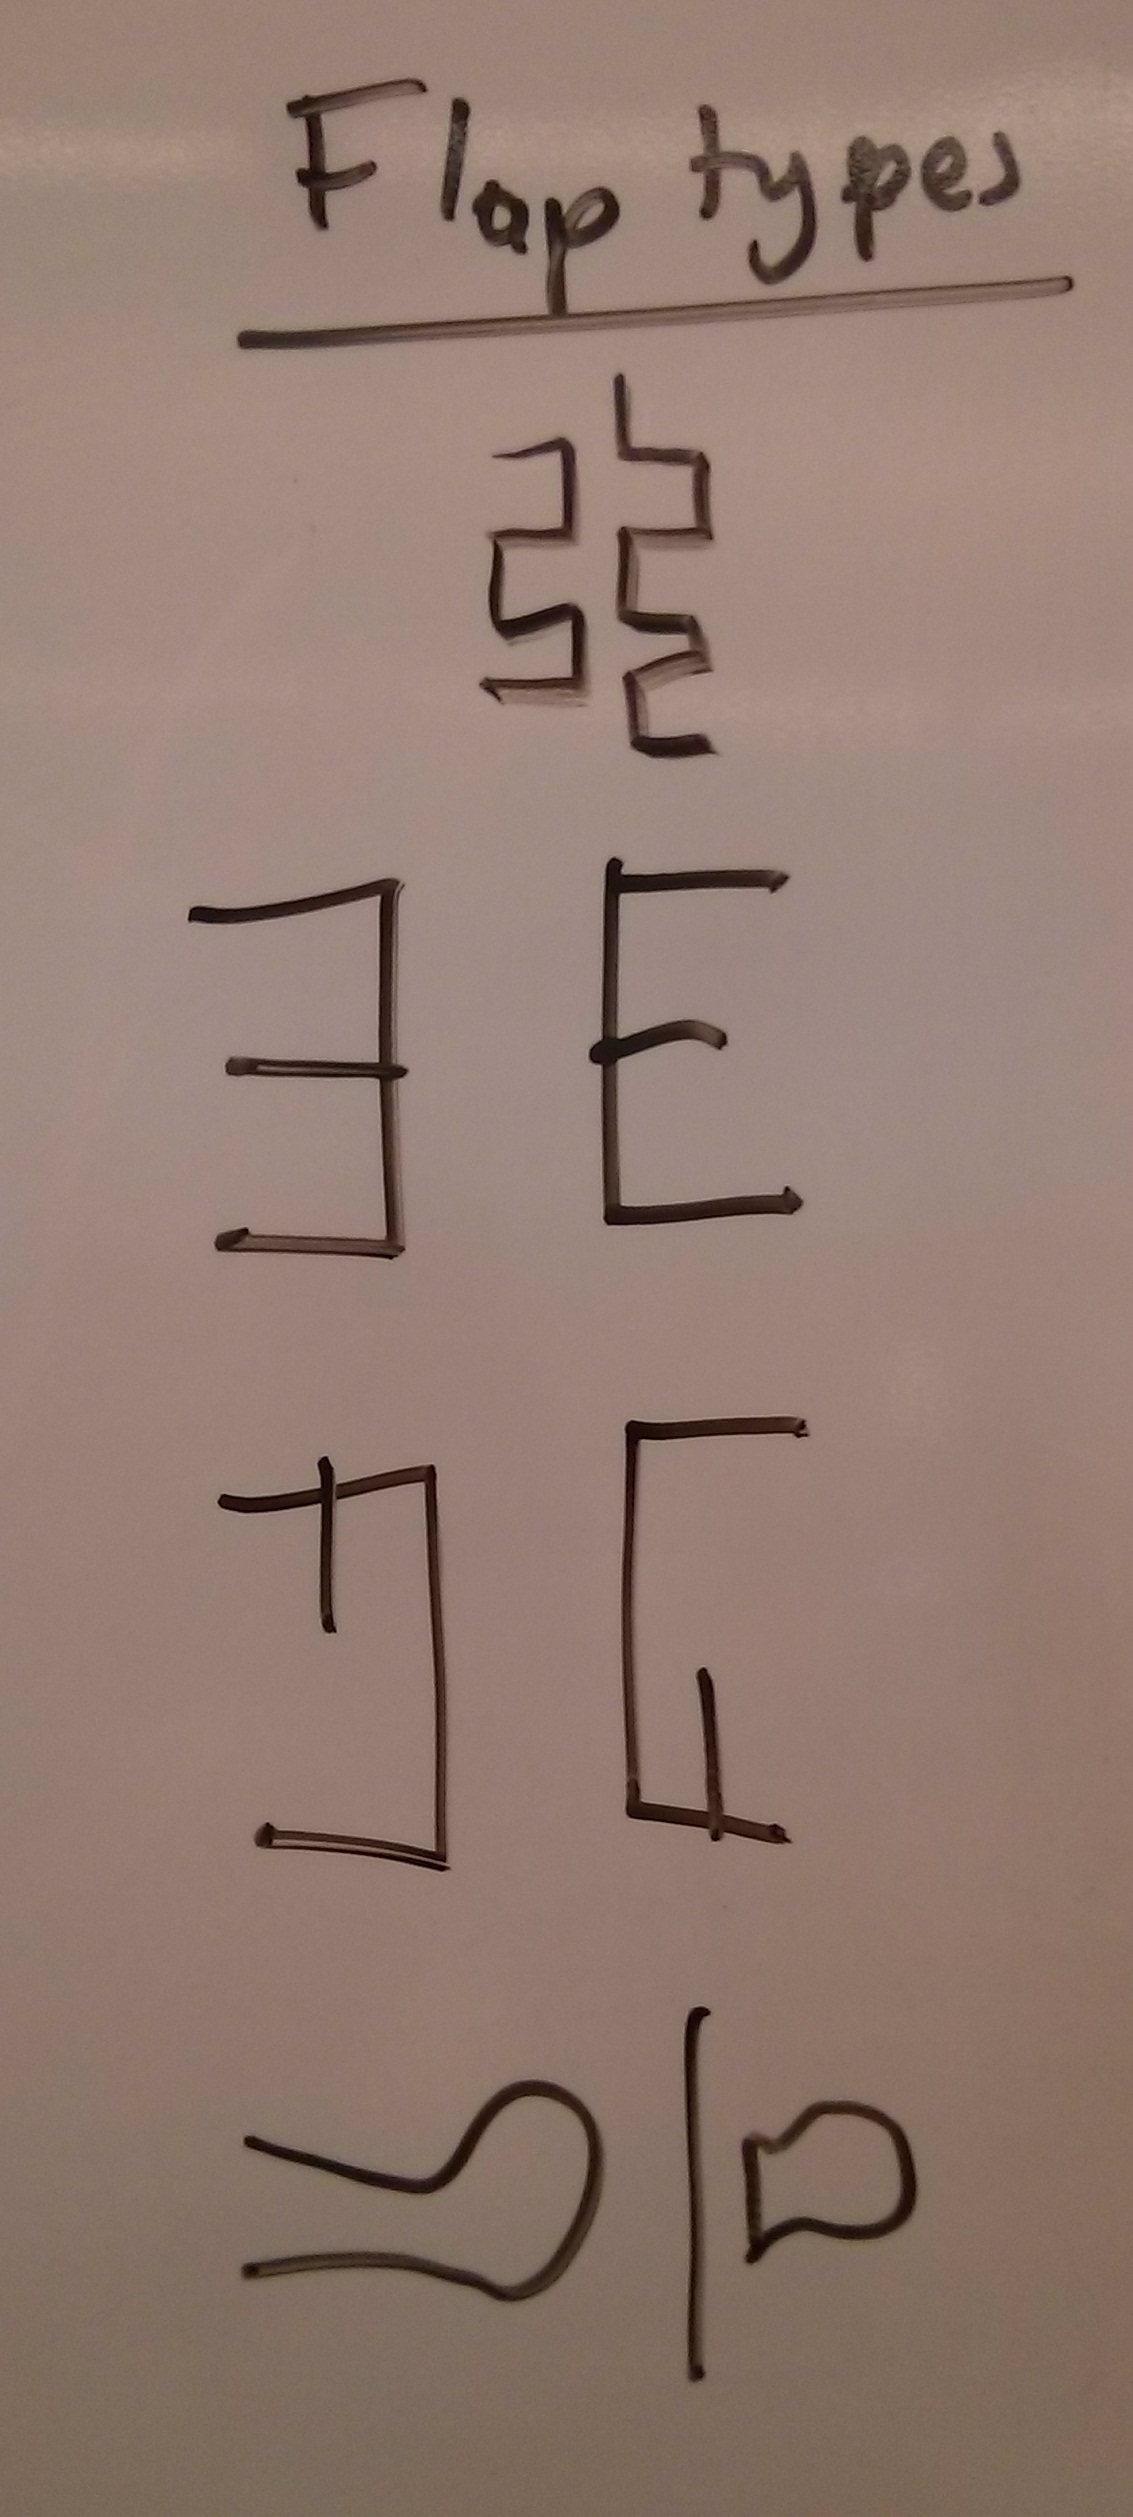 Flap types